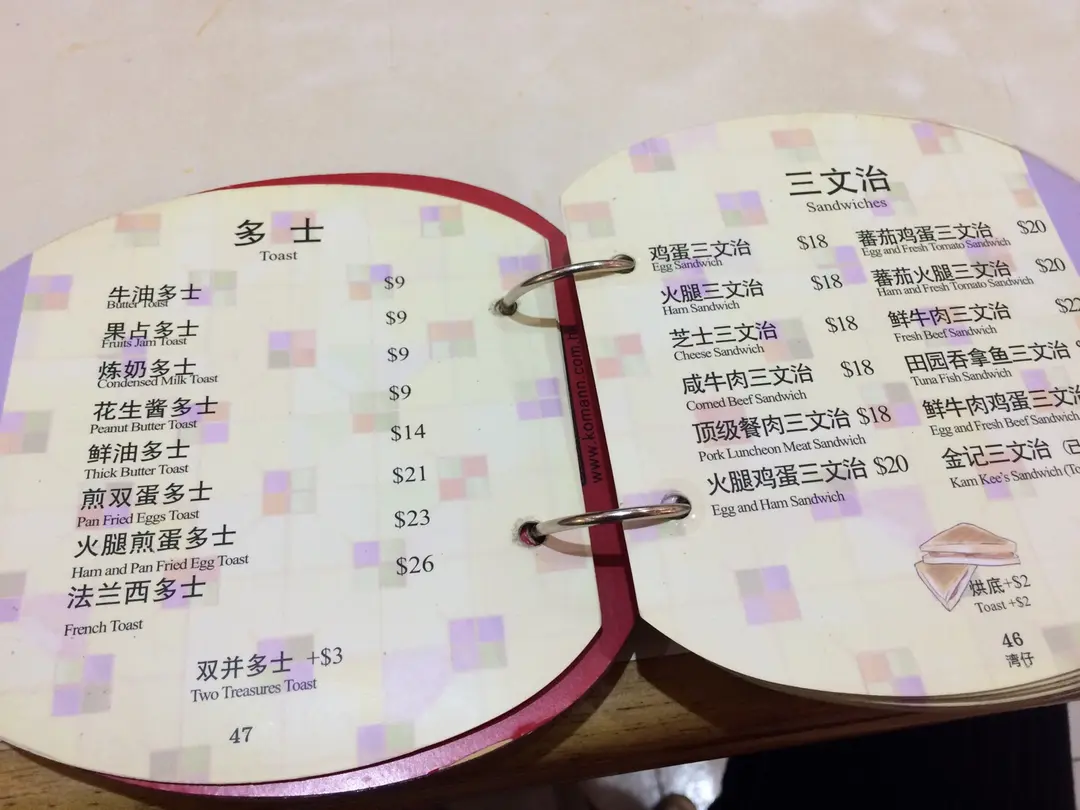 多士
Toast
牛油多士 $9
Butter Toast
果占多士 $9
Fruits Jam Toast
炼奶多士 $9
Condensed Milk Toast
花生酱多士 $9
Peanut Butter Toast
鲜油多士 $14
Thick Butter Toast
煎双蛋多士 $21
Pan Fried Eggs Toast
火腿煎蛋多士 $23
Ham and Pan Fried Egg Toast
法兰西多士 $26
French Toast
双并多士 +$3
Two Treasures Toast
47
www.komann.com.h
三文治
Sandwiches
鸡蛋三文治 $18
Egg Sandwich
火腿三文治 $18
Ham Sandwich
芝士三文治 $18
Cheese Sandwich
咸牛肉三文治 $18
Corned Beef Sandwich
顶级餐肉三文治 $18
Pork Luncheon Meat Sandwich
火腿鸡蛋三文治 $20
Egg and Ham Sandwich
蕃茄鸡蛋三文治 $20
Egg and Fresh Tomato Sandwich
蕃茄火腿三文治 $20
Ham and Fresh Tomato Sandwich
鲜牛肉三文治 $22
Fresh Beef Sandwich
田园吞拿鱼三文治
Tuna Fish Sandwich
鲜牛肉鸡蛋三文治
Egg and Fresh Beef Sandwich
金记三文治 (已
Kam Kee's Sandwich (To
烘底+$2
Toast +$2
46
湾仔